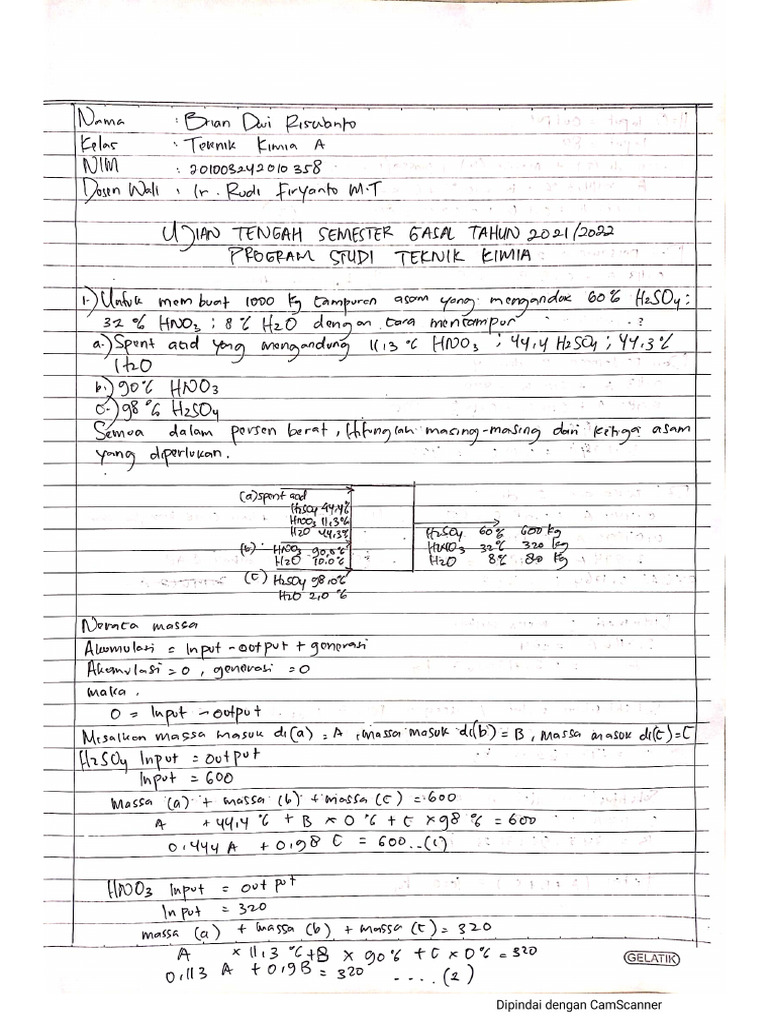 Nama : Brian Dwi Riswanto
Kelas : Teknik Kimia A
NIM : 201003242010358
Dosen Wali : Ir. Rudi Firyanto M.T
UJIAN TENGAH SEMESTER GASAL TAHUN 2021/2022
PROGRAM STUDI TEKNIK KIMIA
1.) Untuk membuat 1000 kg campuran asam yang mengandok 60% H2SO4;
32 % HNO3 ; 8% H2O dengan cara mencampur ?
a.) Spent acid yang mengandung 11,3 % HNO3 ; 44,4 H2SO4 ; 44,3%
H2O
b.) 90% HNO3
c.) 98 % H2SO4
Semua dalam persen berat, Hitunglah masing-masing dari ketiga asam
yang diperlukan.
(a) spent acid
H2SO4 44,4%
HNO3 11,3%
H2O 44,3%
(b) HNO3 90,0%
H2O 10,0%
(c) H2SO4 98,0%
H2O 2,0 %
H2SO4 60% 600 kg
HNO3 32% 320 kg
H2O 8% 80 kg
Neraca massa
Akumulasi = Input - output + generasi
Akumulasi = 0 , generasi = 0
maka ,
0 = Input - output
Misalkan massa masuk di(a) = A , massa masuk di(b) = B , massa masuk di(c) = C
H2SO4 Input = output
Input = 600
Massa (a) + massa (b) + massa (c) = 600
A + 44,4 % + B x 0 % + C x 98 % = 600
0,444 A + 0,98 C = 600...(1)
HNO3 Input = output
Input = 320
massa (a) + massa (b) + massa (c) = 320
A x 11,3 % + B x 90% + C x 0% = 320
0,113 A + 0,9B = 320 ....(2)
GELATIK
Dipindai dengan CamScanner